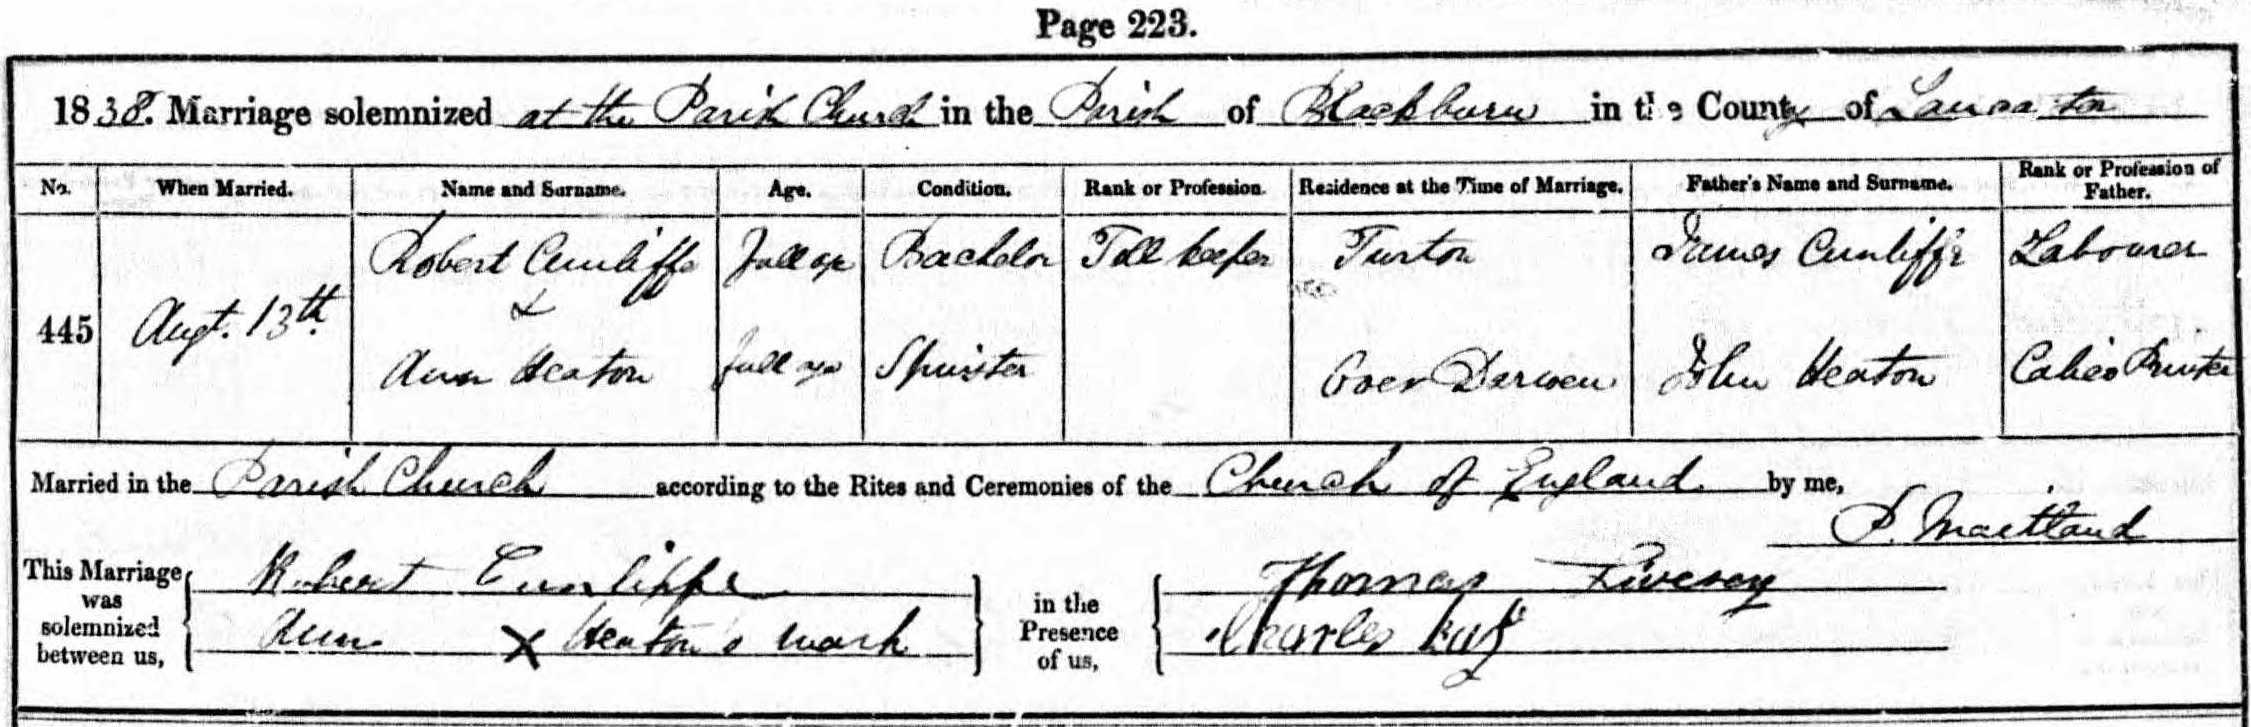 Page 223.
1838. Marriage solemnized at the Parish Church in the Parish of Blackburn in the County of Lancaster
No. When Married. Name and Surname. Age. Condition. Rank or Profession. Residence at the Time of Marriage. Father's Name and Surname. Rank or Profession of Father.
445 Augt. 13th. Robert Cunliffe Full age Bachelor Toll keeper Turton James Cunliffe Labourer
&
Ann Heaton full age Spinster Over Darwen John Heaton Calico Printer
Married in the Parish Church according to the Rites and Ceremonies of the Church of England by me,
P. Maitland
This Marriage was solemnized between us, Robert Cunliffe in the Presence of us, Thomas Livesey
Ann X Heaton's mark Charles